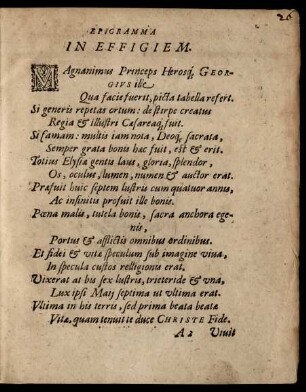 EPIGRAMMA
IN EFFIGIEM.
MAgnanimus Princeps Herosq; GEOR-
GIVS ille
Qua facie fuerit, picta tabella refert.
Si generis repetas ortum: de stirpe creatus
Regia & illustri Cæsareaq; fuit.
Si famam: multis iam nota, Deoq; sacrata,
Semper grata bonis hac fuit, est & erit.
Totius Elysiæ gentis laus, gloria, splendor,
Os, oculus, lumen, numen & auctor erat.
Præfuit huic septem lustris cum quatuor annis,
Ac infinitis profuit ille bonis.
Pœna malis, tutela bonis, sacra anchora ege-
nis,
Portus & afflictis omnibus ordinibus.
Et fidei & vitæ speculum sub imagine viua,
In specula custos relligionis erat.
Vixerat at bis sex lustris, trieteride & vna,
Lux ipsi Maij septima ut vltima erat.
Vltima in his terris, sed prima beata beatæ
Vitæ, quam tenuit te duce CHRISTE Fide.
A 2 Viuit